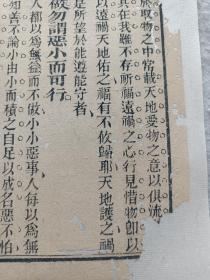 於取物之中常載天地愛物之意以俱流
其在我雖不存祈福遠禍之心行見惜物卽以
以遠禍天地佑之福有不攸歸耶天地護之禍
是所望於能遵能守者
做勿謂惡小而可行
人都以爲無益而不做小小惡事人每以爲無
知善不論小由小而積之自足以成名惡不怕